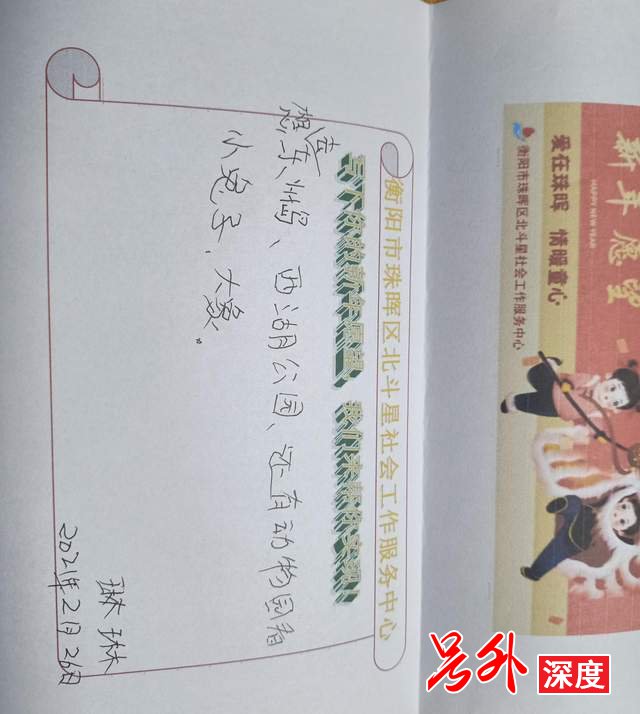 新年愿望
HAPPY NEW YEAR
爱在珠晖 情暖童心
衡阳市珠晖区北斗星社会工作服务中心
衡阳市珠晖区北斗星社会工作服务中心
写下你的新年愿望，我们来帮你实现！
想去东洲岛、西湖公园、还有动物园看
小兔子、大象。
琳琳
2021年2月26日
号外
深度